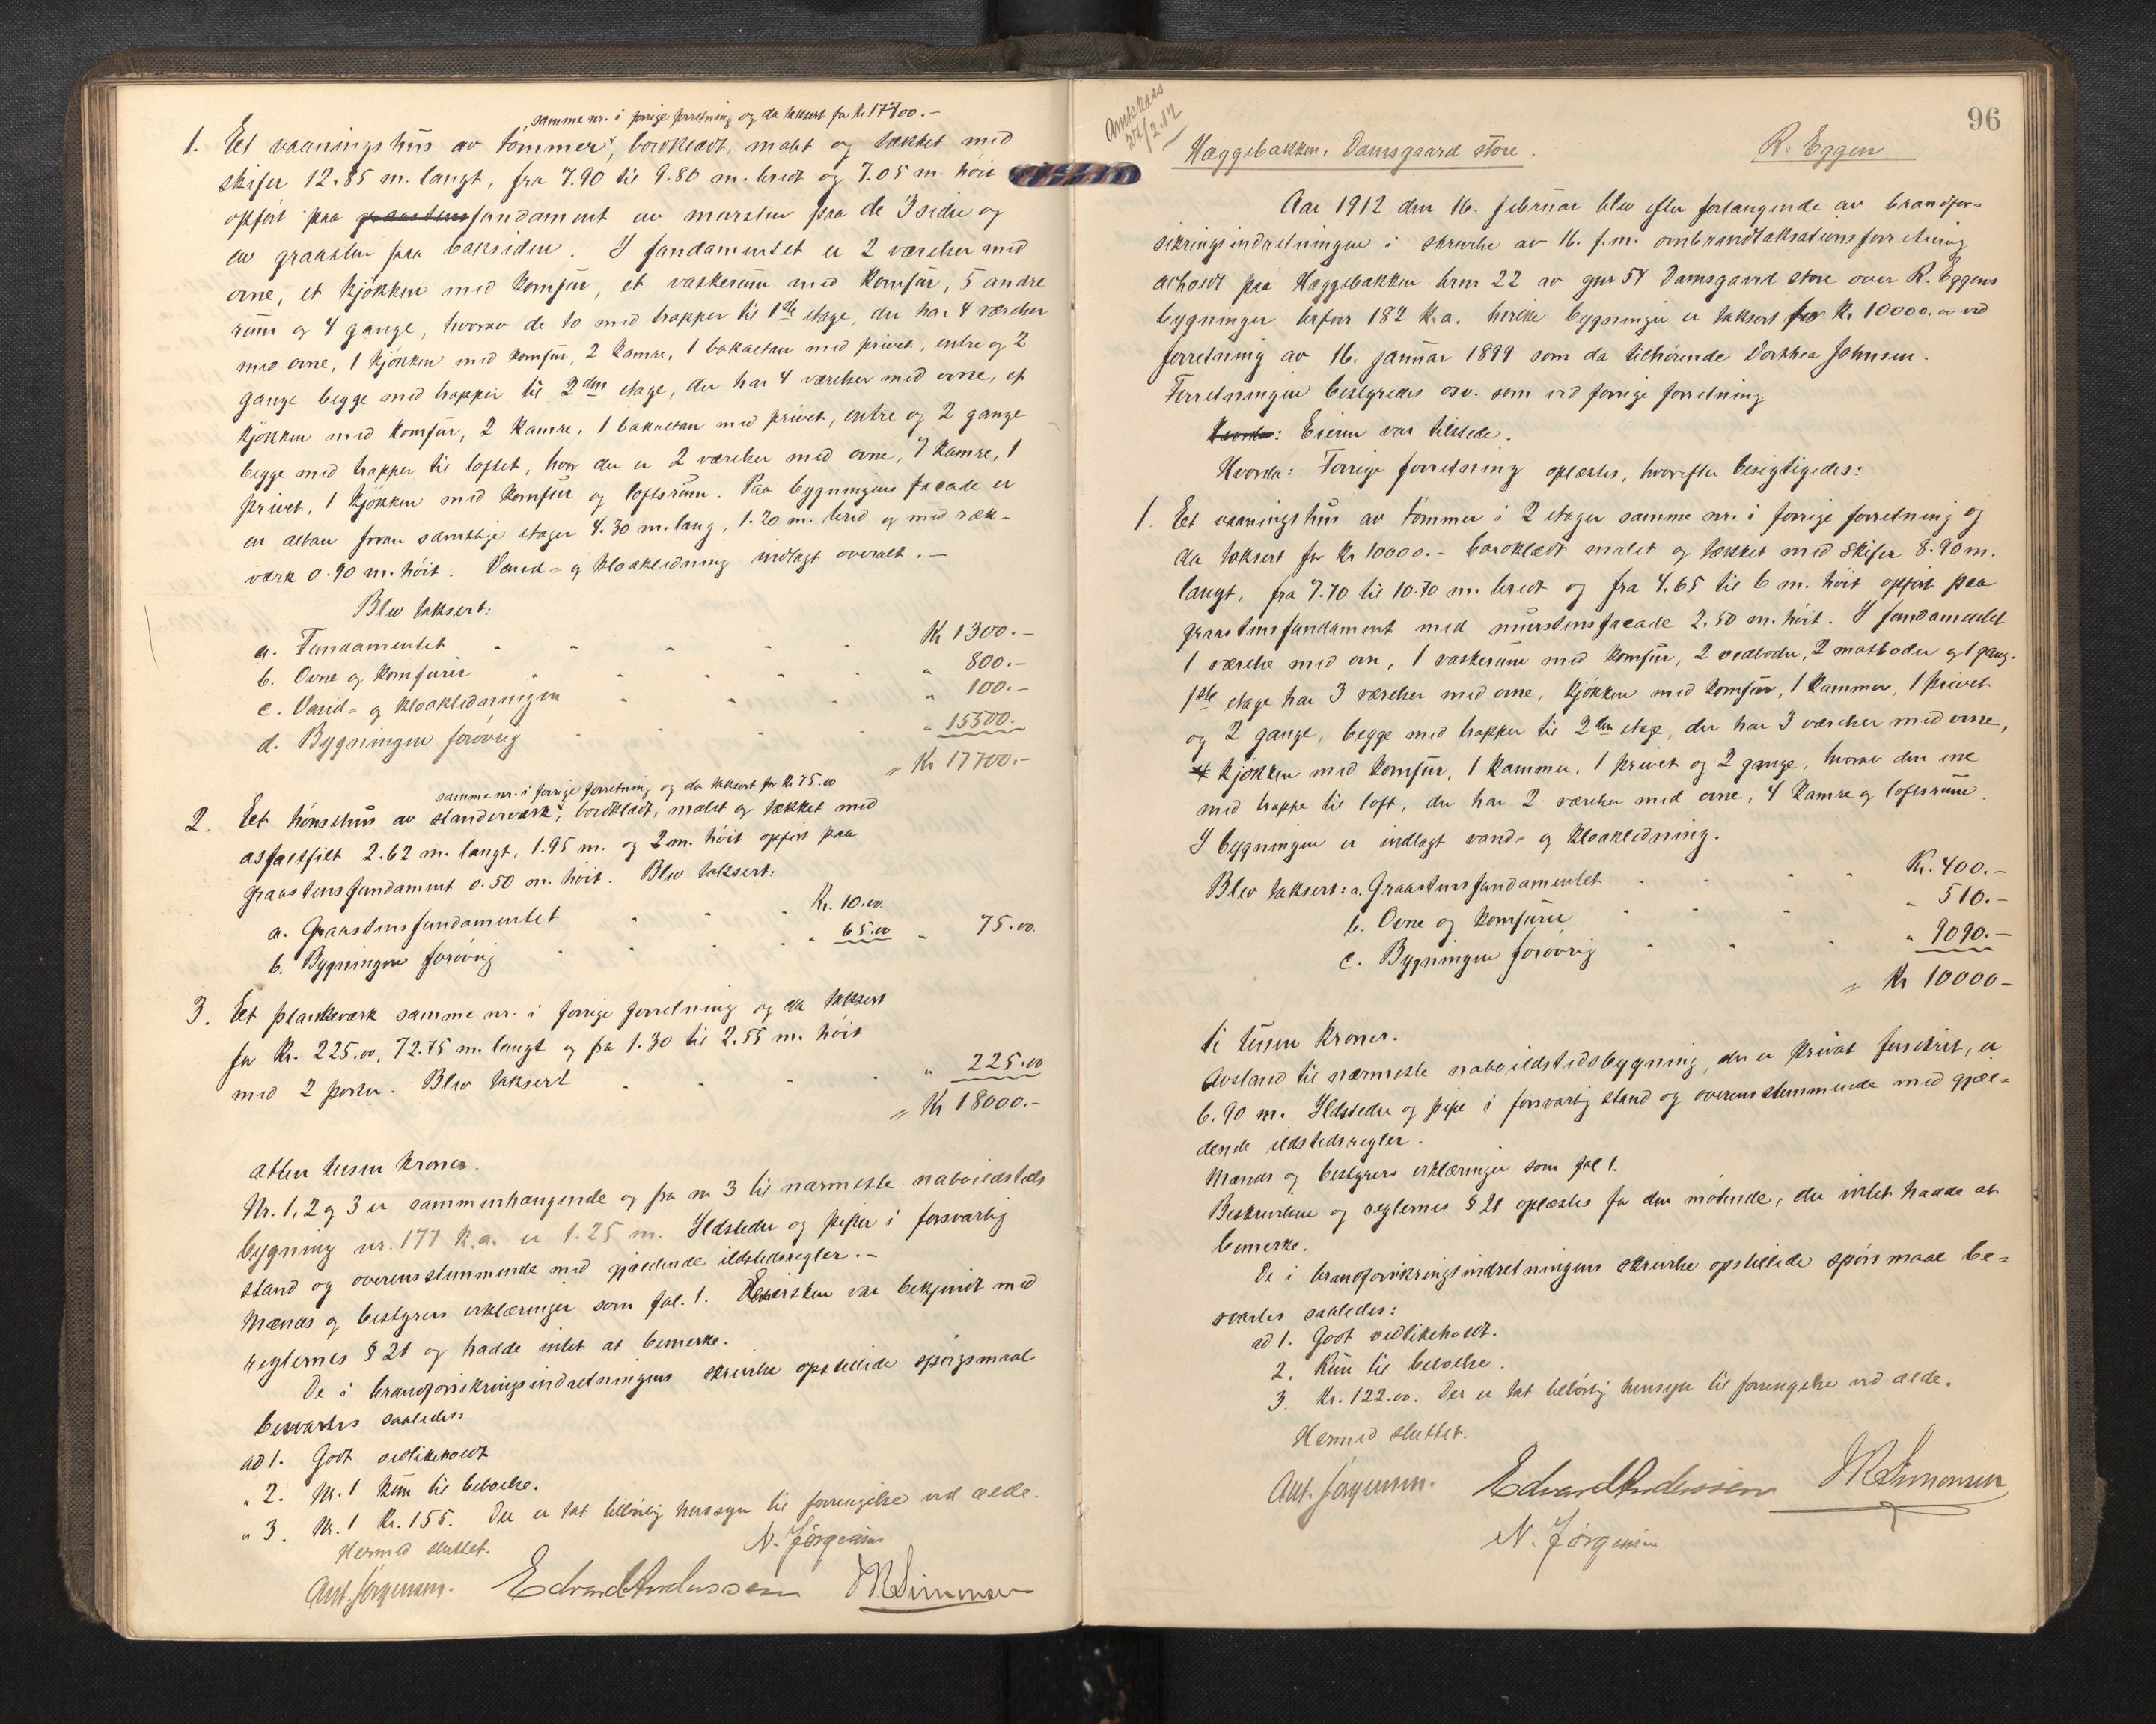 samme nr. i forrige forretning og da taksert for Kr 17700.-
1. Et vaaningshus av tømmer, bordklædt, malet og tækket med
skifer 12.85 m. langt, fra 7.90 til 9.80 m. bredt og 7.05 m. høit
opført paa graastensfundament av mursten paa de 3 sider og
av graasten paa baksiden. I fundamentet er 2 værelser med
ovne, et kjøkken med komfur, et vaskerum med komfur, 5 andre
rum og 4 gange, hvorav de to med trapper til 1ste etage, der har 4 værelser
med ovne, 1 kjøkken med komfur, 2 kamre, 1 bakaltan med privet, entre og 2
gange begge med trapper til 2den etage, der har 4 værelser med ovne, et
kjøkken med komfur, 2 kamre, 1 bakaltan med privet, entre og 2 gange
begge med trapper til loftet, hvor der er 2 værelser med ovne, 7 kamre, 1
privet, 1 kjøkken med komfur og loftsrum. Paa bygningens facade er
en altan foran samtlige etager 4.30 m. lang, 1.20 m. bred og med ræk-
værk 0.90 m. høit. Vand- og kloakledning indlagt overalt.-
Blev taksert:
a. Fundamentet Kr 1300.-
b. Ovne og komfurer " 800.-
c. Vand- og kloakledningen " 100.-
d. Bygningen forøvrig " 15500.-
" Kr 17700.-
samme nr. i forrige forretning og da taksert for Kr 75.00
2. Et hønsehus av standerværk, bordklædt, malet og tækket med
asfaltfilt 2.62 m. langt, 1.95 m. og 2 m. høit opført paa
graastensfundament 0.50 m. høit. Blev taksert:
a. Graastensfundamentet Kr. 10.00
b. Bygningen forøvrig " 65.00 " 75.00.
3. Et plankeværk samme nr. i forrige forretning og da taksert
for Kr. 225.00, 72.75 m. langt og fra 1.30 til 2.55 m. høit
med 2 porter. Blev taksert " 225.00
" Kr 18000.-
atten tusen kroner.
Nr. 1, 2 og 3 er sammenhængende og fra nr 3 til nærmeste naboildsteds
bygning nr. 177 K.a. er 1.25 m. Ildsteder og piper i forsvarlig
stand og overensstemmende med gjældende ildstedsregler.-
Mænds og bestyrers erklæringer som fol. 1. Eiersken var bekjendt med
reglernes § 21 og hadde intet at bemerke.
De i brandforsikringsindretningens skrivelse opstillede spørgsmaal
besvartes saaledes:
ad 1. Godt vedlikeholdt
" 2. Nr. 1 kun til beboelse.
" 3. Nr. 1 Kr. 155. Der er tat tilbørlig hensyn til forringelse ved ælde.
Hermed sluttet.
N. Jørgensen
Ant. Jørgensen. Edvard Andersen M Simonsen
Amtskass
27/2.12
96
Hæggebakken, Damsgaard store. R. Eggen
Aar 1912 den 16. februar blev efter forlangende av brandfor-
sikringsindretningen i skrivelse av 16. f.m. ombrandtaksationsforretning
avholdt paa Hæggebakken brnr 22 av gnr 54 Damsgaard store over R. Eggens
bygninger brfnr 182 K.a. hvilke bygninger er taksert for Kr 10000.00 ved
forretning av 16. januar 1899 som da tilhørende Dorthea Johnsen.
Forretningen bestyredes osv. som ved forrige forretning
Hvorda: Eieren var tilstede.
Hvorda: Forrige forretning oplæstes, hvorefter besigtigedes:
1. Et vaaningshus av tømmer i 2 etager samme nr. i forrige forretning og
da taksert for Kr 10000.- bordklædt malet og tækket med skifer 8.90 m.
langt, fra 7.70 til 10.70 m. bredt og fra 4.65 til 6 m. høit opført paa
graastensfundament med murstensfacade 2.50 m. høit. I fundamentet
1 værelse med ovn, 1 vaskerum med komfur, 2 vedboder, 2 matboder og 1 gang.
1ste etage har 3 værelser med ovne, kjøkken med komfur, 1 kammer, 1 privet
og 2 gange, begge med trapper til 2den etage, der har 3 værelser med ovne,
kjøkken med komfur, 1 kammer, 1 privet og 2 gange, hvorav den ene
med trappe til loft, der har 2 værelser med ovne, 4 kamre og loftsrum.
I bygningen er indlagt vand- og kloakledning.
Blev taksert: a. Graastensfundamentet Kr. 400.-
b. Ovne og komfurer " 510.-
c. Bygningen forøvrig " 9090.-
" Kr 10000-
ti tusen kroner.
Avstand til nærmeste naboildstedsbygning, der er privat forsikret, er
6.90 m. Ildsteder og pipe i forsvarlig stand og overensstemmende med gjæl-
dende ildstedsregler.
Mænds og bestyrers erklæringer som fol 1.
Beskrivelsen og reglernes § 21 oplæstes for den møtende, der intet hadde at
bemerke.
De i brandforsikringsindretningens skrivelse opstillede spørsmaal be-
svartes saaledes:
ad 1. Godt vedlikeholdt.
2. Kun til beboelse.
3. Kr. 122.00. Der er tat tilbørlig hensyn til forringelse ved ælde.
Hermed sluttet.
Ant. Jørgensen. Edvard Andersen M Simonsen
N. Jørgensen